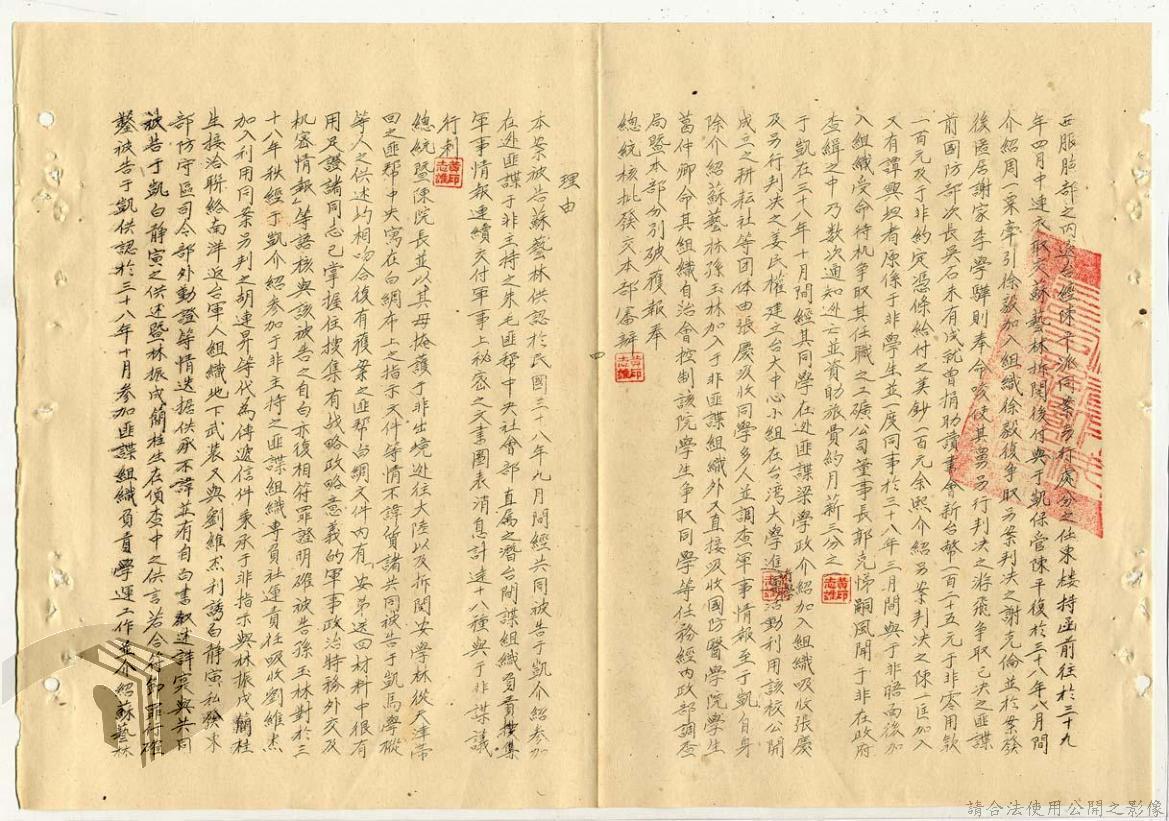 西服脂部之內至台經陳平派同案另行處分之任東樓持函前往於三十九
年四月中連衣取交蘇藝林拆閱後付與于凱保管陳平復於三十八年八月間
介紹周一粟牽引徐毅加入組織徐毅復爭取另案判決之謝克倫並於案發
後隱居謝家李學驊則奉命唆使其舅另行判決之游飛爭取已決之匪諜
前國防部次長吳石未有成就曾捐助讀書會新台幣一百二十五元于非零用款
一百元及于非約定憑條給付之美鈔一百元余熙介紹另案判決之陳一匡加入
又有譚興坦者原係于非學生並一度同事於三十八年三月間與于非晤面後加
入組織受命待机爭取其任職之工礦公司董事長郭克悌嗣風聞于非在政府
查緝之中乃數次通知逃亡並資助旅費約月薪三分之一
于凱在三十八年十月間經其同學在逃匪諜梁學政介紹加入組織吸收張慶
及另行判決之姜民權建立台大中心小組在台灣大學進行活動利用該校公開
成立之耕耘社等団体由張慶吸收同學多人並調查軍事情報至于凱自身
除介紹蘇藝林孫玉林加入于非匪諜組織外又直接吸收國防醫學院學生
葛仲卿命其組織自治會控制該院學生爭取同學等任務經內政部調查
局暨本部分別破獲報奉
總統核批發交本部審辦
理由
本案被告蘇藝林供認於民國三十八年九月間經共同被告于凱介紹參加
在逃匪諜于非主持之朱毛匪幫中央社會部直屬之潛台間諜組織負責搜集
軍事情報連續交付軍事上祕密之文書圖表消息計達十八種與于非謀議
行刺
總統暨陳院長並以其母掩護于非出境逃往大陸以及拆閱安學林從天津帶
回之匪幫中央寫在白綢布上之指示文件等情不諱質諸共同被告于凱馬學樅
等人之供述均相吻合復有獲案之匪幫白綢文件內有「安弟送四材料中很有
用足證諸同志已掌握住搜集有战略政略意義的軍事政治特務外交及
机密情報」等語核與該被告之自白亦復相符罪證明確被告孫玉林對於三
十八年秋經于凱介紹參加于非主持之匪諜組織專負社運責任吸收劉維杰
加入利用同案另判之胡連昇等代為傳遞信件秉承于非指示與林振成簡桂
生接洽聯絡南洋返台軍人組織地下武裝又與劉維杰利誘白靜寅私發本
部防守區司令部外動證等情迭據供承不諱並有自白書叙述詳実與共同
被告于凱白靜寅之供述暨林振成簡桂生在偵查中之供言若合符節罪行確
鑿被告于凱供認於三十八年十月參加匪諜組織負責學運工作並介紹蘇藝林
四
黃印志誰
請合法使用公開之影像